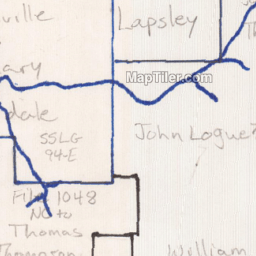 ville
Lapsley
ary
MapTiler.com
dale
SSLG
94-E
John Logue
File 1048
No to
Thomas
Thompson
William